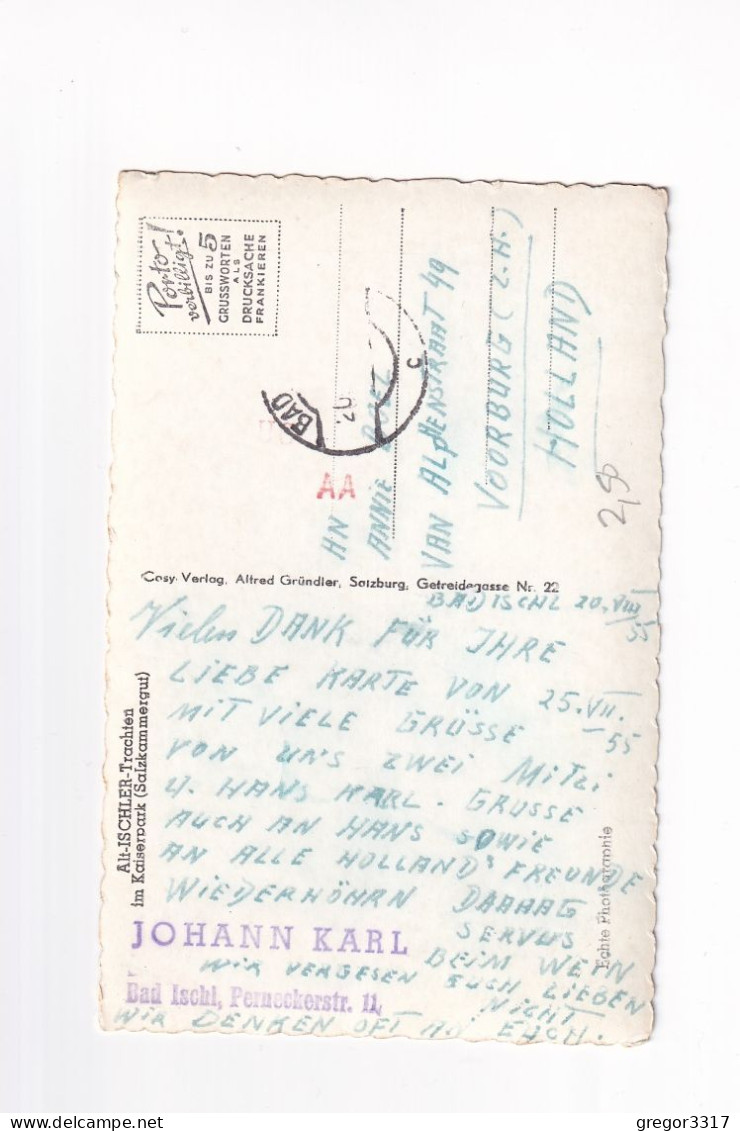 Porto
verbilligt!
BIS ZU 5
GRUSSWORTEN
ALS
DRUCKSACHE
FRANKIEREN
BAD
C
AA
AN
ANNIE
VAN ALPHENSTRAAT 49
VOORBURG (Z.H.)
HOLLAND
2,50
Cosy-Verlag, Alfred Gründler, Salzburg, Getreidegasse Nr. 22
BAD ISCHL 20. VIII
55
Vielen DANK FÜR IHRE
LIEBE KARTE VON 25. VII.
55
MIT VIELE GRÜSSE
VON UNS ZWEI MITZI
U. HANS KARL. GRÜSSE
AUCH AN HANS SOWIE
AN ALLE HOLLAND'S FREUNDE
WIEDERHÖHRN DAAAAG
SERVUS
BEIM WEIN
WIR VERGESEN EUCH LIEBEN
NICHT
WIR DENKEN OFT AN EUCH.
Alt-ISCHLER-Trachten
im Kaiserpark (Salzkammergut)
JOHANN KARL
Bad Ischl, Perneckerstr. 11
Echte Photographie
gregor3317